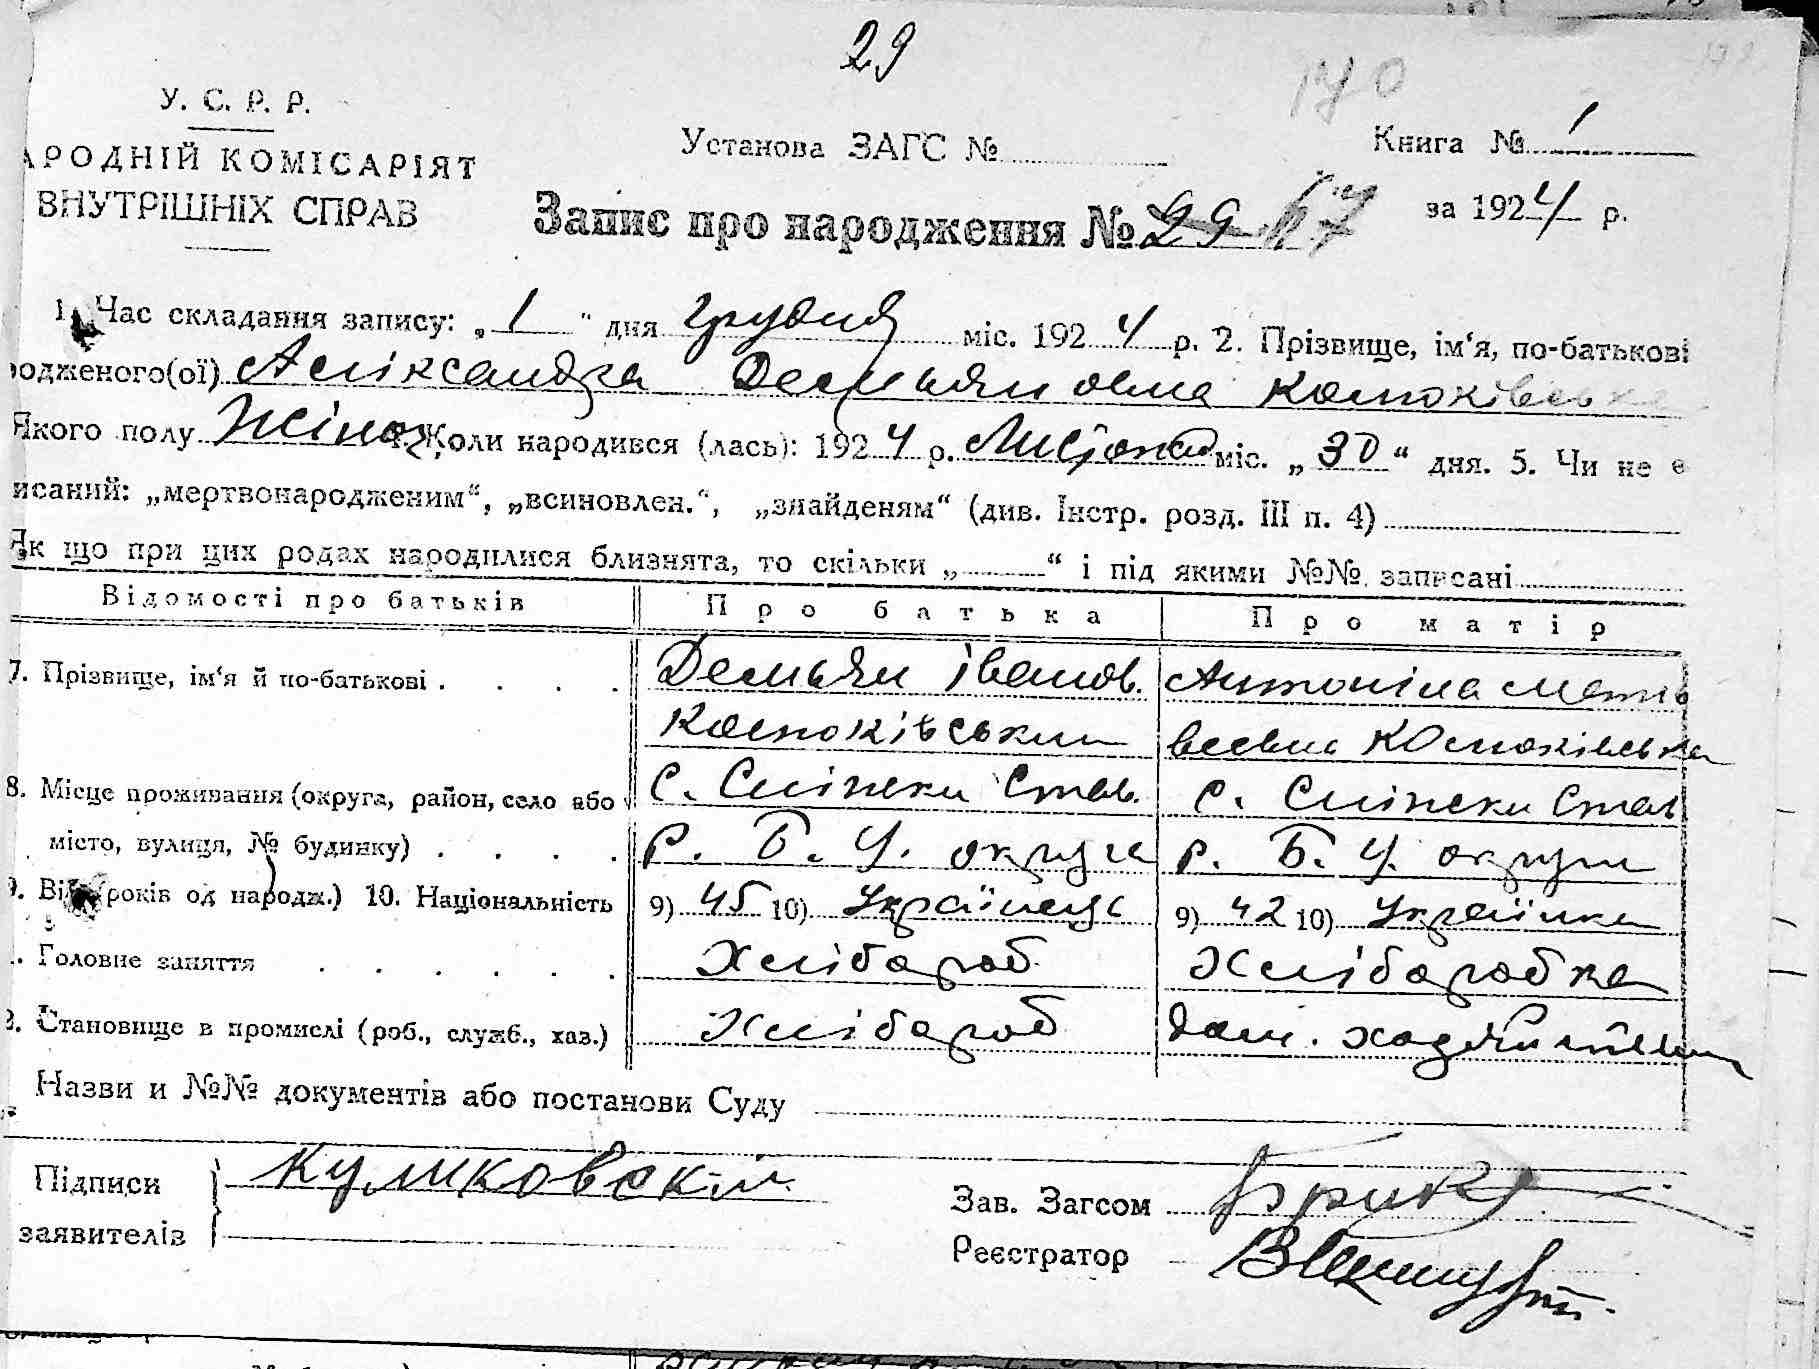 29
170
У. С. Р. Р.
АРОДНІЙ КОМІСАРІЯТ
ВНУТРІШНІХ СПРАВ
Установа ЗАГС №
Книга № 1
Запис про народження № 29 67
за 1924 р.
1. Час складання запису: „1" дня Грудня міс. 1924 р. 2. Прізвище, ім‘я, по-батькові
одженого(ої) Аліксандра Демьяновна
Якого полу Жіноч. Коли народився (лась): 1924 р. міс. „30“ дня. 5. Чи не є
исаний: „мертвонародженим“, „всиновлен.“, „знайденям“ (див. Інстр. розд. III п. 4)
Як що при цих родах народилися близнята, то скільки „ “ і під якими №№ записані
Відомості про батьків Про батька Про матір
7. Прізвище, ім‘я й по-батькові . . . . Демьян Іванов. Антоніна Матв
веевна
8. Місце проживання (округа, район, село або С. Став. С. Став
місто, вулиця, № будинку) . . . . р. Б. Ц. округа р. Б. Ц. округи
9. Ві (років од народж.) 10. Національність 9) 45 10) Українець 9) 42 10) Українка
. Головне заняття . . . . . . Хлібороб Хлібаробка
. Становище в промислі (роб., служб., хаз.) Хлібороб дом.
Назви и №№ документів або постанови Суду
Підписи Куликовскій
заявителів
Зав. Загсом
Реєстратор